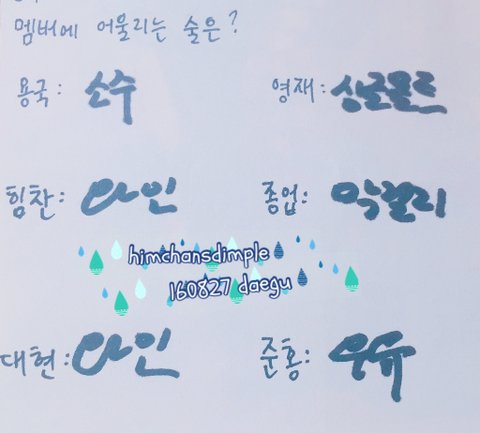 멤버에 어울리는 술은?
용국: 소수
영재: 싱글몰트
힘찬: 와인
종업: 막걸리
himchansdimple
160827 daegu
대현: 와인
준홍: 우유